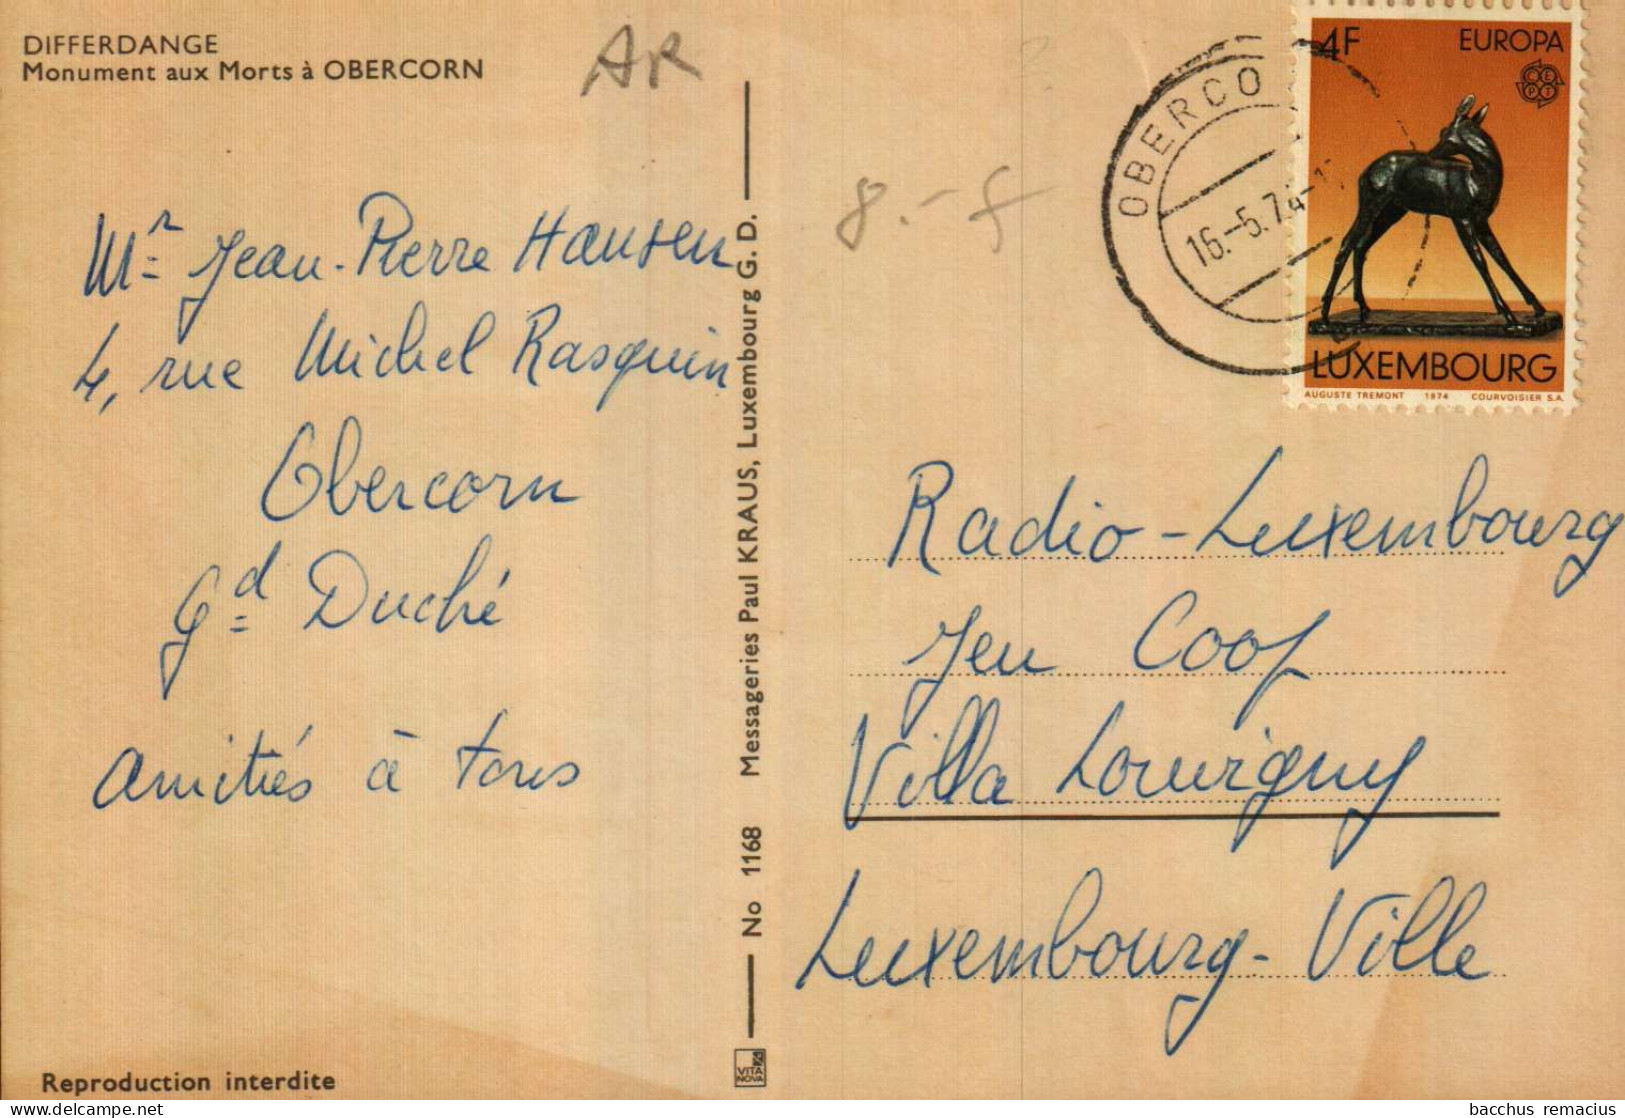 DIFFERDANGE
Monument aux Morts à OBERCORN
AR
Mr Jean-Pierre Hansen
4, rue Michel Rasquin
Obercorn
Gd Duché
amitiés à tous
Reproduction interdite
No 1168 Messageries Paul KRAUS, Luxembourg G. D.
VITA NOVA
8.-
OBERCO
16.-5.74
4F EUROPA
CEPT
LUXEMBOURG
AUGUSTE TREMONT 1974 COURVOISIER S.A.
Radio-Luxembourg
Jeu Coop
Villa Louvigny
Luxembourg-Ville
bacchus remacius
delcampe.net